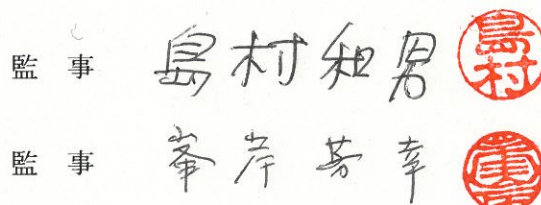 監 事 島村和男 島村
監 事 峯岸芳幸